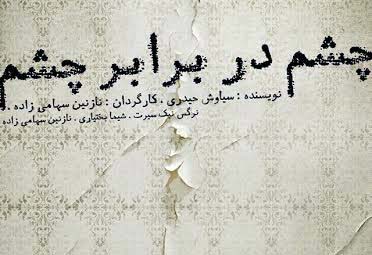 چشم در برابر چشم
نویسنده : سیاوش حیدری . کارگردان : نازنین سهامی زاده .
نرگس نیک سیرت . شیما بختیاری . نازنین سهامی زاده